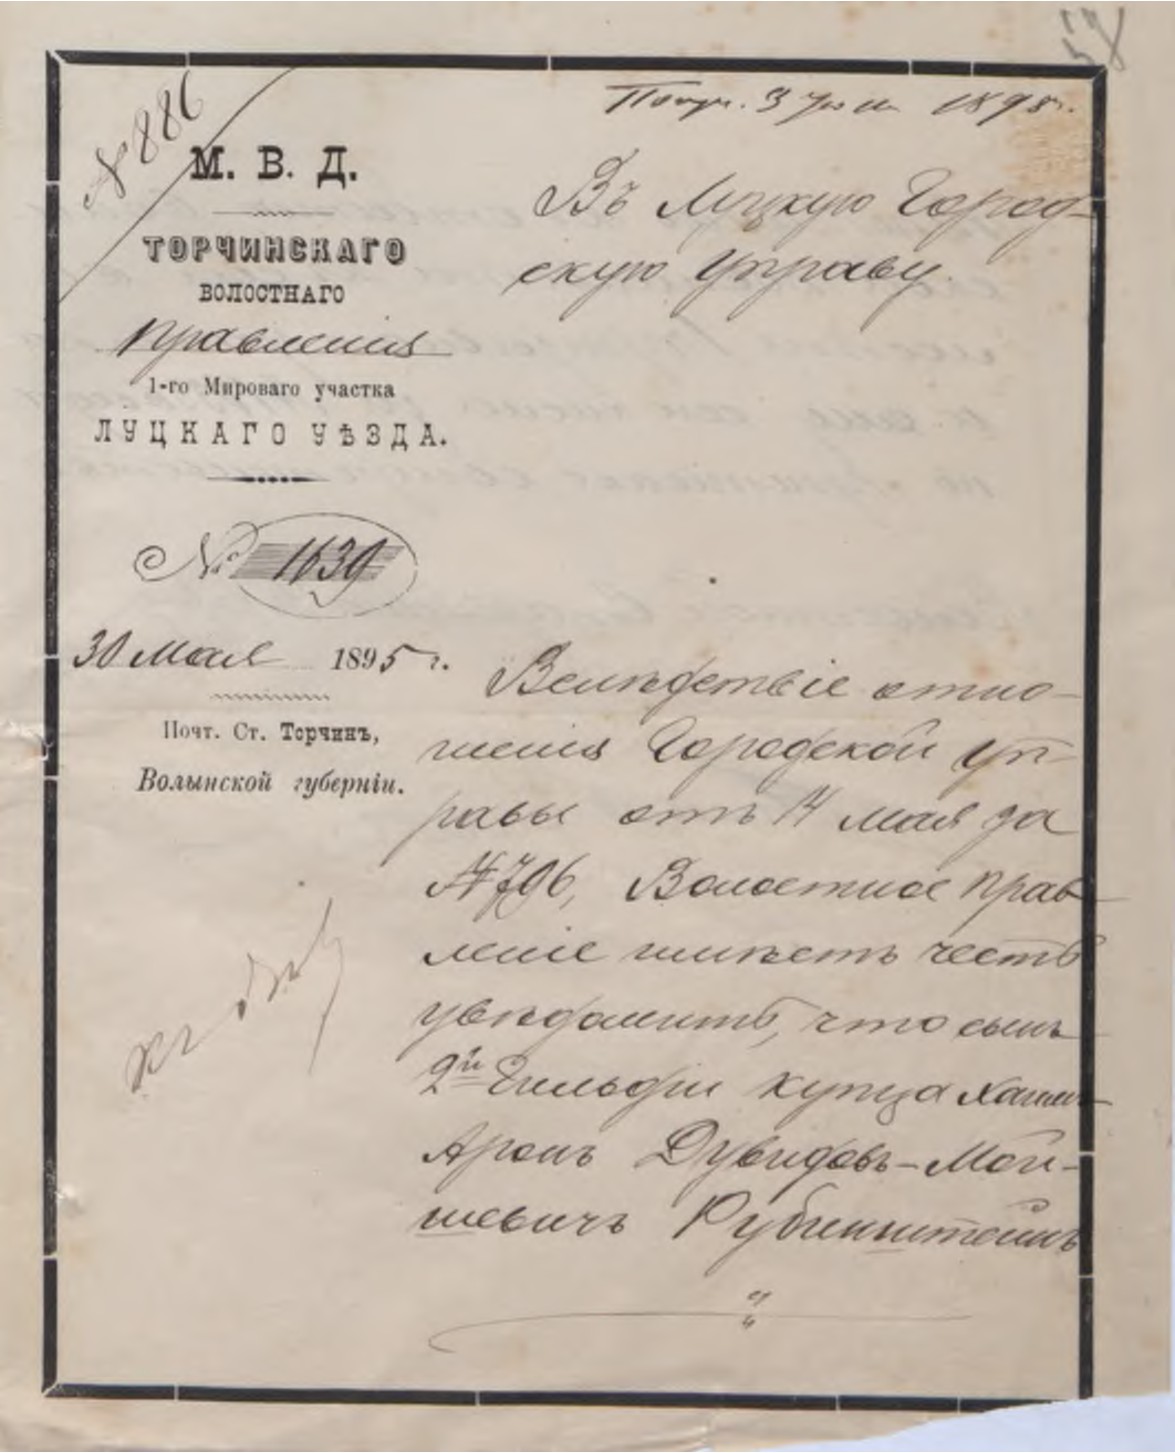 № 886
М. В. Д.
ТОРЧИНСКАГО
ВОЛОСТНАГО
Правленія
1-го Мироваго участка
ЛУЦКАГО УѢЗДА.
№ 1639
30 Мая 1895 г.
Почт. Ст. Торчинъ,
Волынской губерніи.
Получ. 3 Іюня 1895 г.
Въ Луцкую Город-
скую Управу.
Вслѣдствіе отно-
шенія Городской Уп-
равы отъ 14 мая за
№ 796, Волостное Прав-
леніе имѣетъ честь
увѣдомить, что сынъ
2й Гильдіи купца Хаимъ
Аронъ Дувидовъ-Мой-
шевичъ Рубинштейнъ